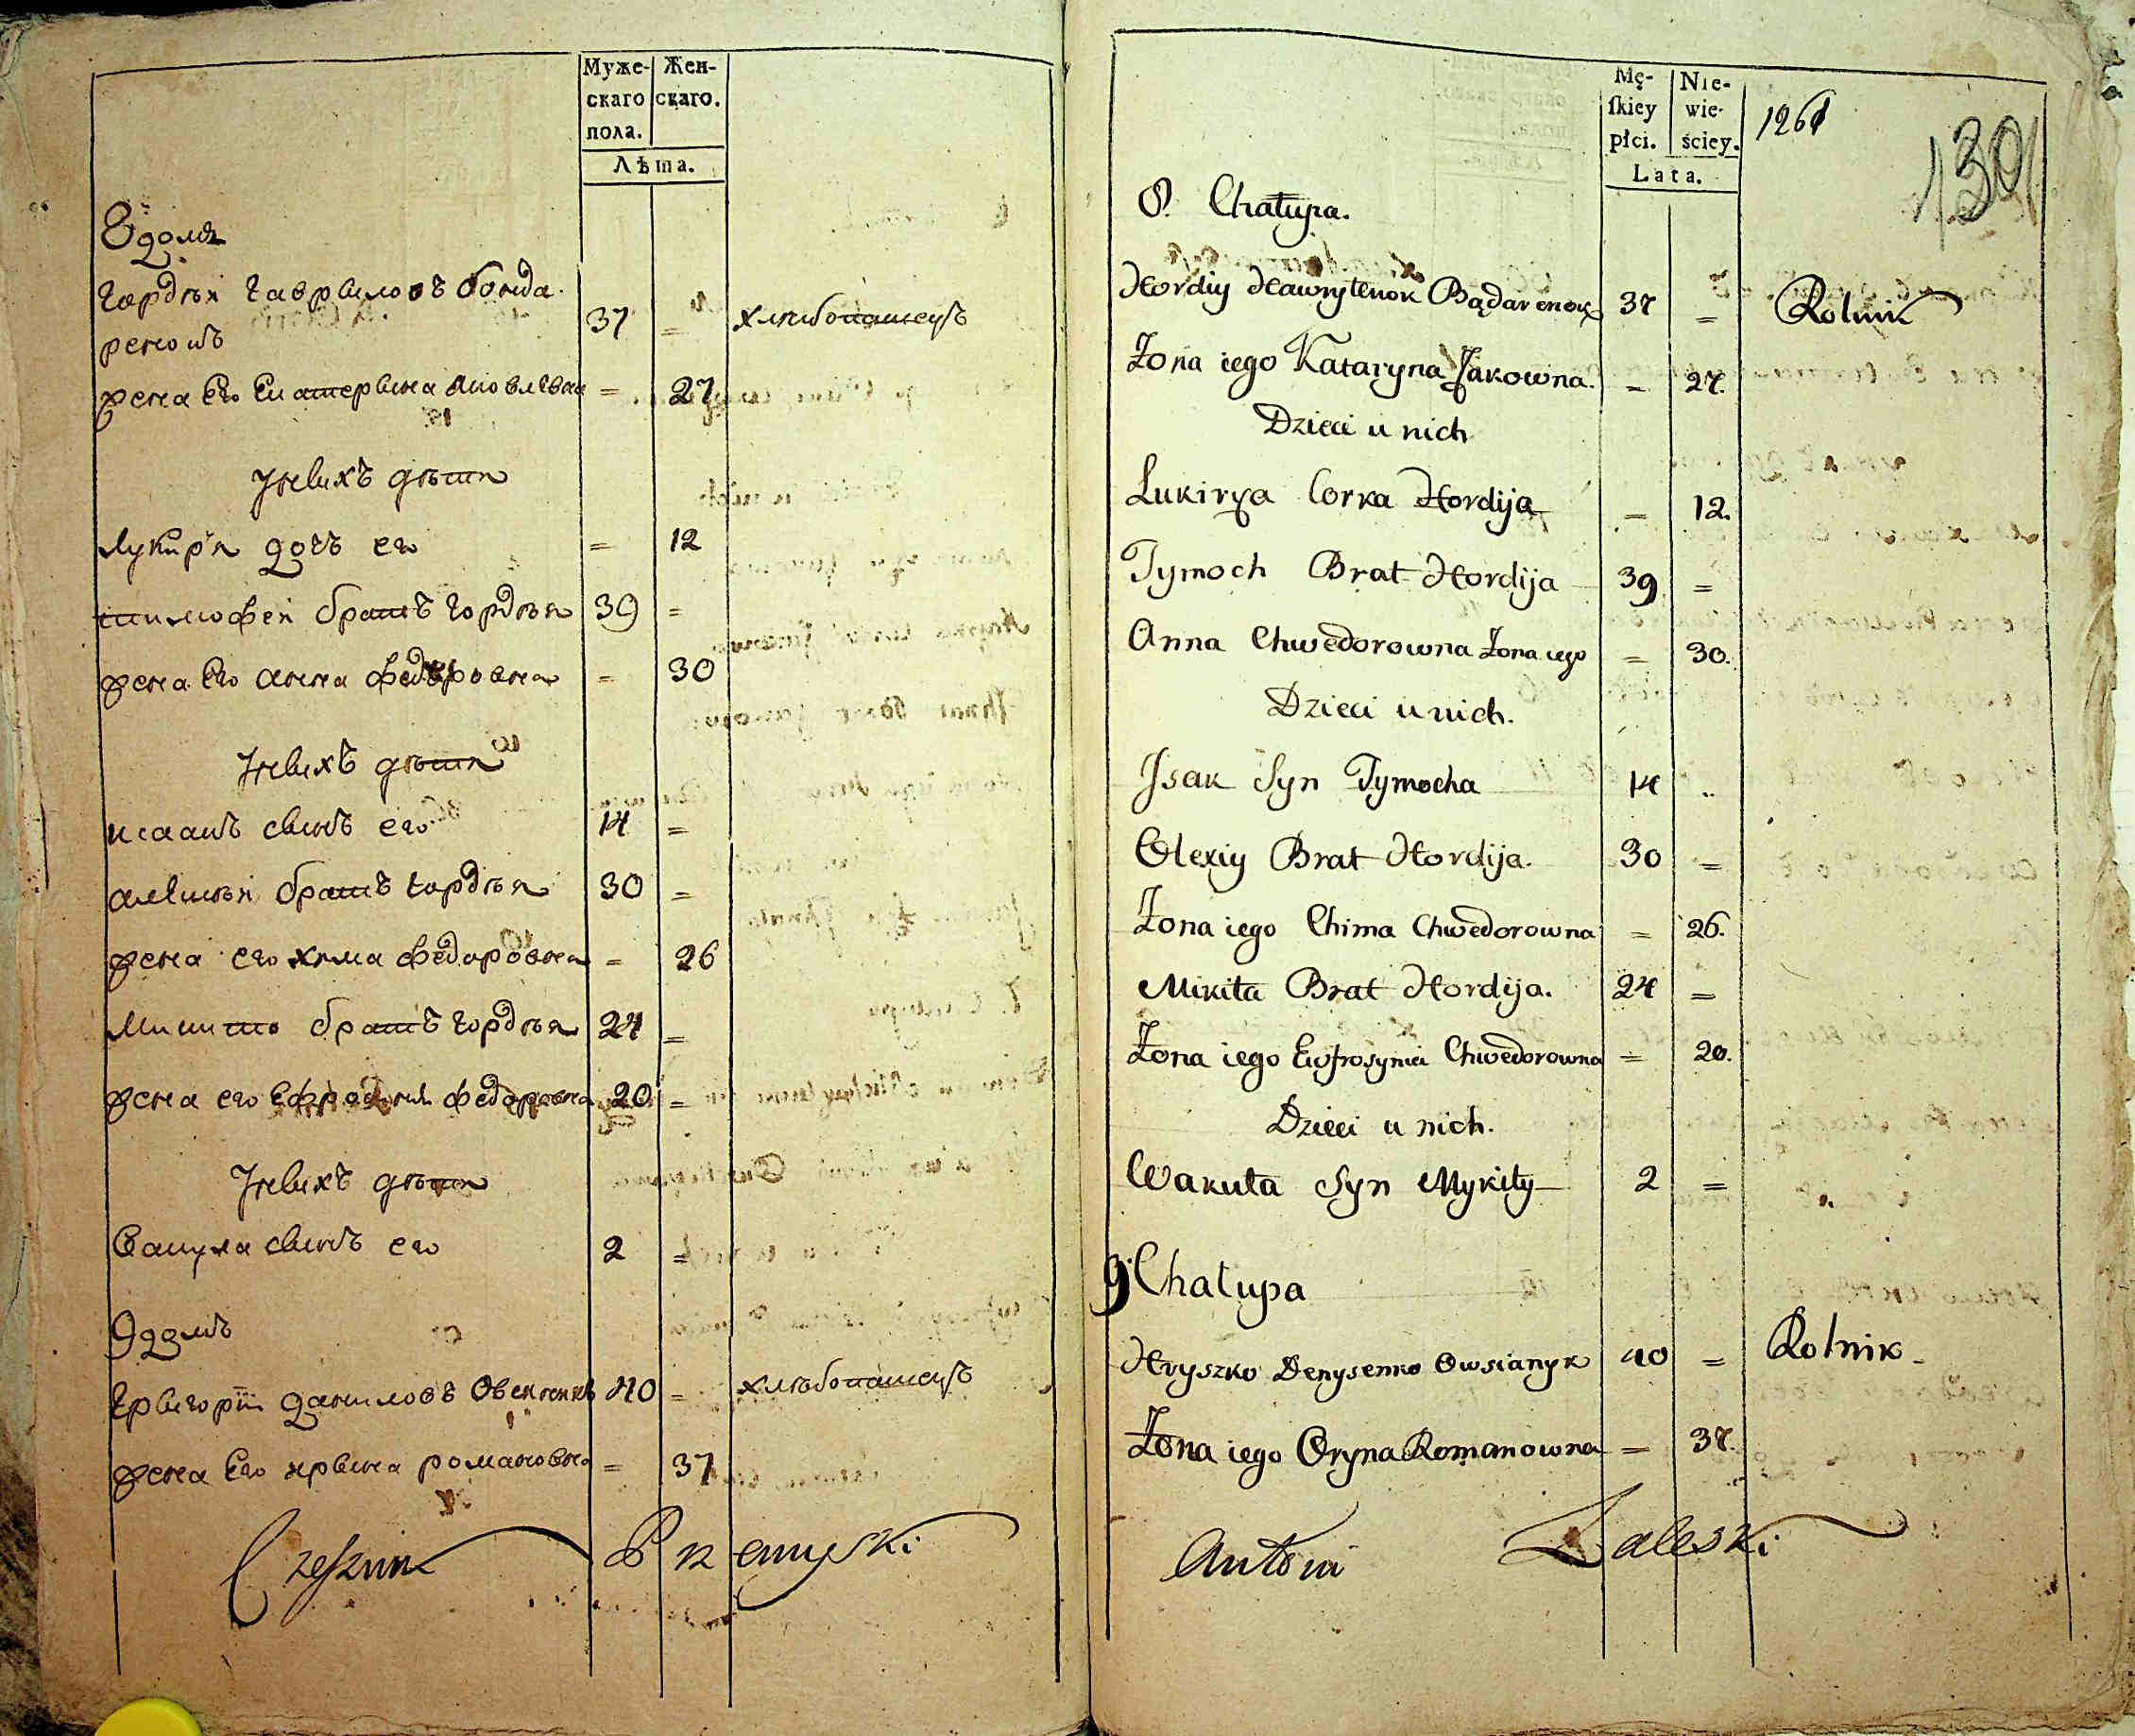 Муже-
скаго
пола.
Жен-
скаго.
Лѣта.
8 домъ
Гордѣй Гавриловъ бонда
ренокъ 37 = хлѣбопашецъ
жена Его Екатерина Яковлевна = 27
У нихъ дѣти
Лукиря дочь его = 12
тимофей братъ гордѣя 39 =
жена Его анна федоровна = 30
У нихъ дѣти
исаакъ сынъ его 14 =
алексѣй братъ гордѣя 30 =
жена его хима федоровна = 26
Микита братъ гордѣя 24 =
жена его Ефросиня федоровна 20 =
У нихъ дѣти
Вакула сынъ его 2 =
9 домъ
Григорій даниловъ 40 = хлѣбопашецъ
жена Его ирина романовна = 37
Przemyski
Mę-
ſkiey
płci.
Nie-
wie-
ściey.
Lata.
1261
130
8. Chałupa.
Hordiy Hawryłenok Bądarenok 37 = Rolnik
Żona iego Kataryna Jakowna. = 27.
Dzieci u nich
Lukirya Corka Hordija = 12.
Tymoch Brat Hordija 39 =
Anna Chwedorowna Żona iego = 30.
Dzieci u nich.
Jsak Syn Tymocha 14 =
Olexiy Brat Hordija. 30 =
Żona iego Chima Chwedorowna = 26.
Mikita Brat Hordija. 24 =
Żona iego Ewfrosynia Chwedorowna = 20.
Dzieci u nich.
Wakuła Syn Mykity 2 =
9. Chałupa
Hryszko Denysenko Owsianyk 40 = Rolnik
Żona iego Oryna Romanowna = 37.
Antoni Zaleski